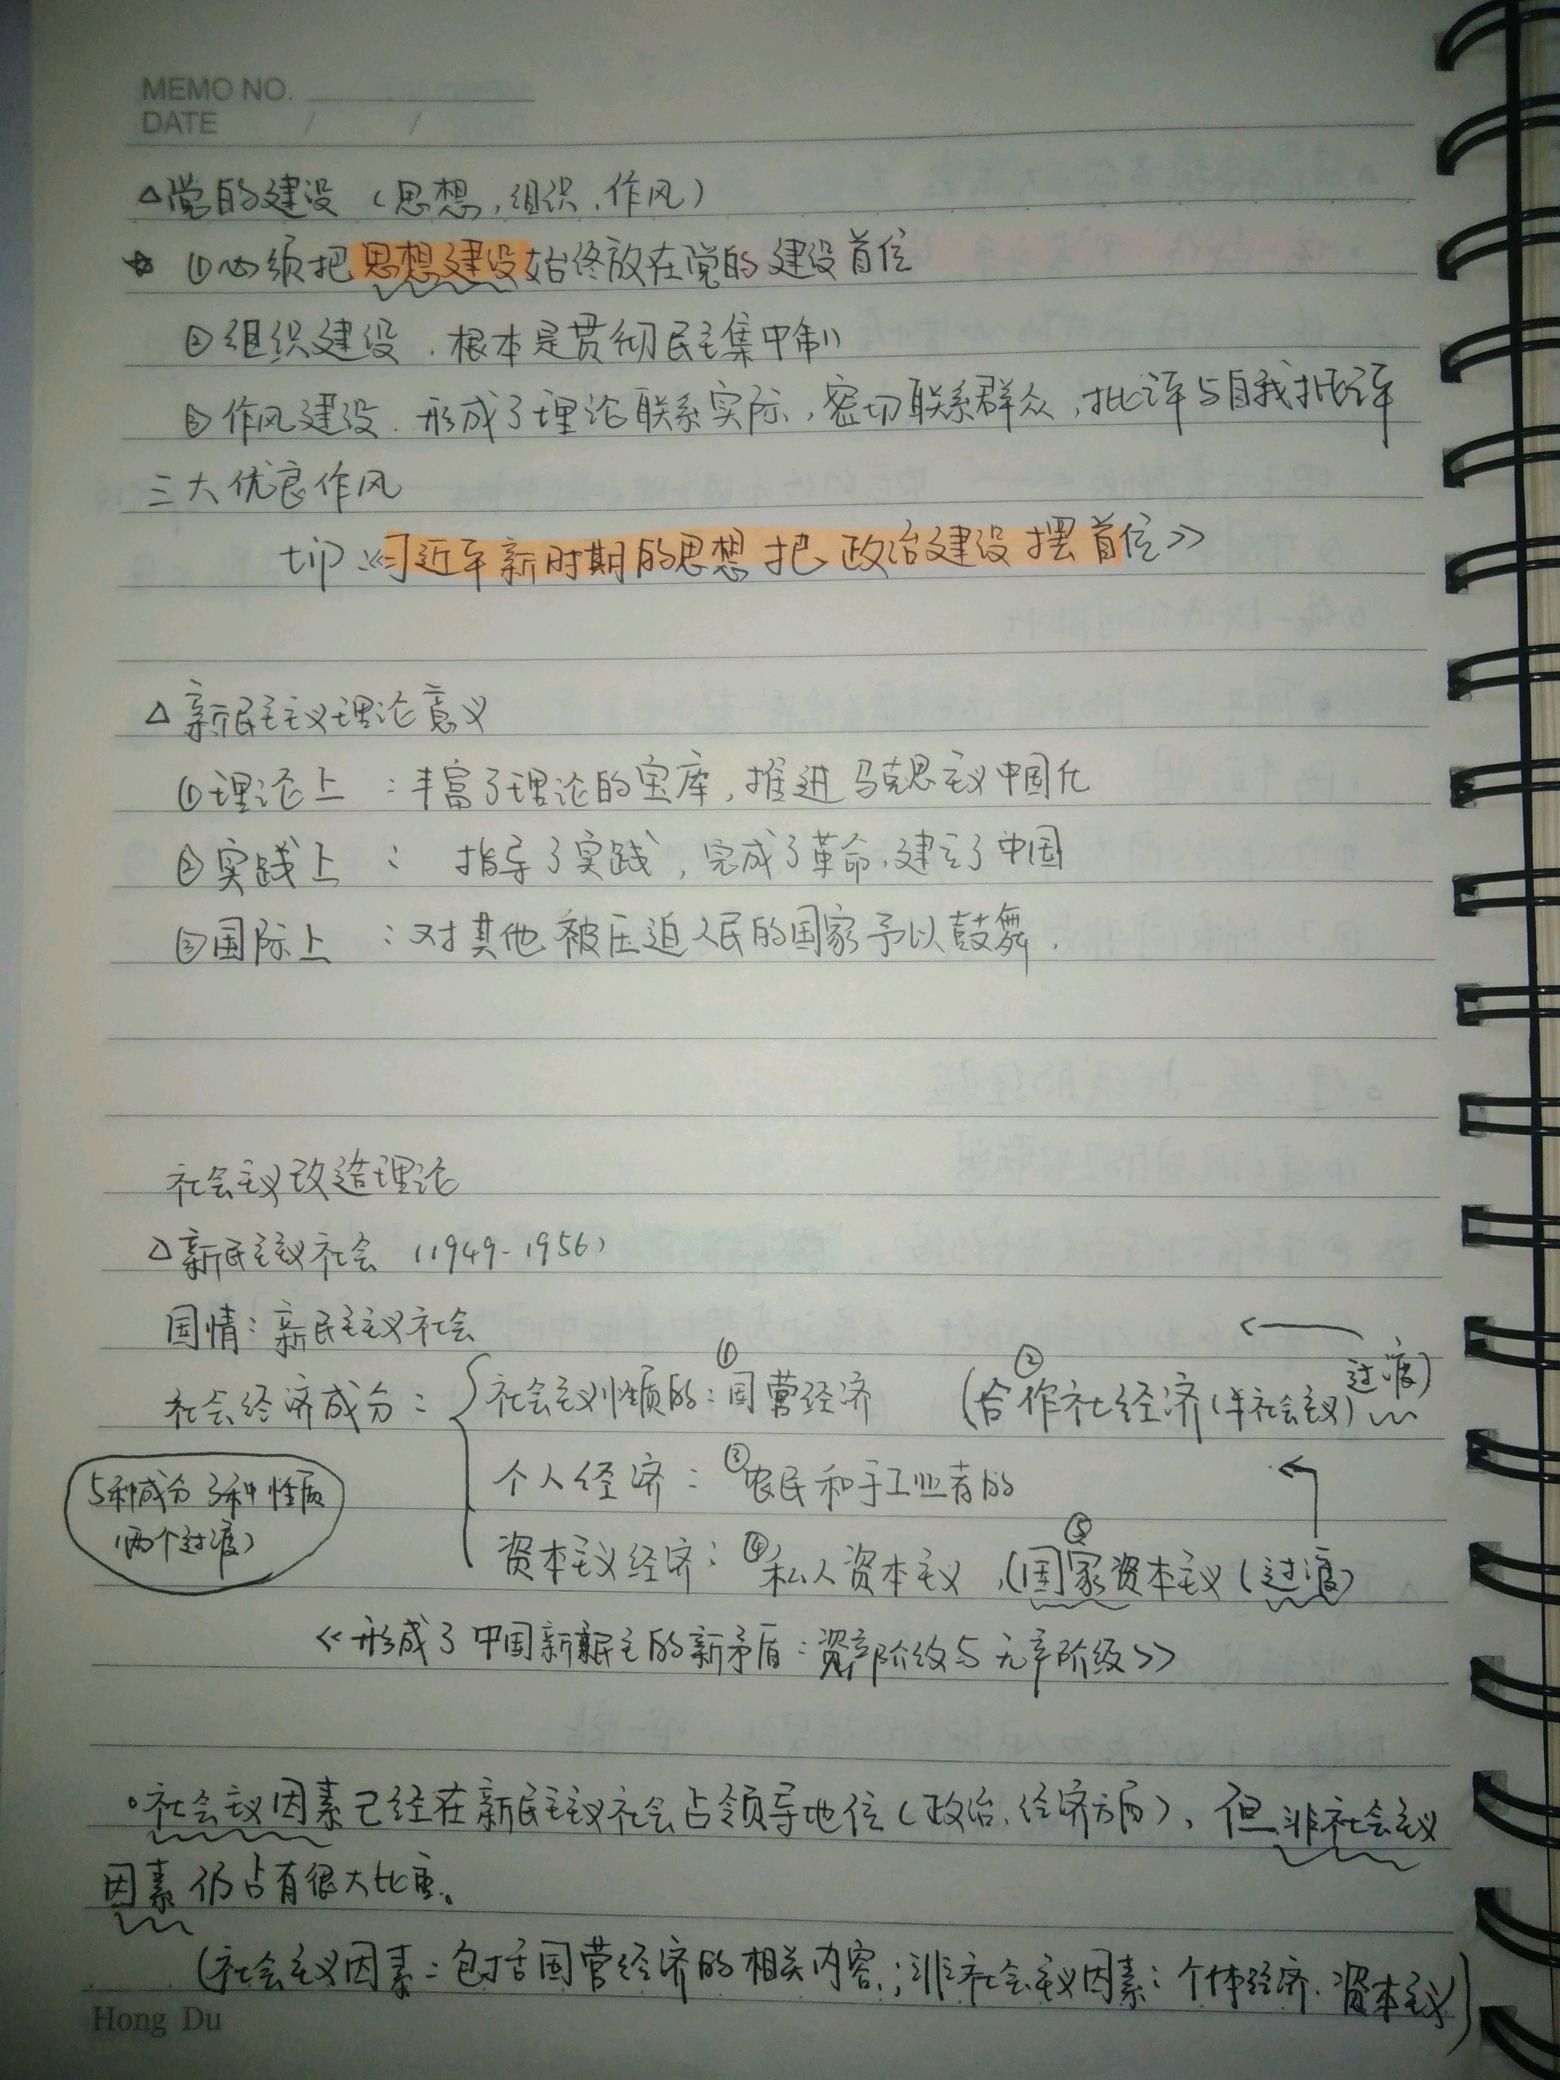 MEMO NO.
DATE / /
△党的建设（思想,组织,作风）
☆ ①必须把思想建设始终放在党的建设首位
②组织建设.根本是贯彻民主集中制
③作风建设.形成了理论联系实际,密切联系群众,批评与自我批评
三大优良作风
tip:《习近平新时期的思想把政治建设摆首位》
△新民主主义理论意义
①理论上：丰富了理论的宝库,推进马克思主义中国化
②实践上：指导了实践,完成了革命,建立了中国
③国际上：对其他被压迫人民的国家予以鼓舞.
社会主义改造理论
△新民主主义社会（1949-1956）
国情：新民主主义社会
社会经济成分：社会主义性质的：①国营经济（②合作社经济（半社会主义）过渡）
个人经济：③农民和手工业者的
5种成分 3种性质
（两个过渡）
资本主义经济：④私人资本主义,（⑤国家资本主义（过渡）
《形成了中国新民主的新矛盾：资产阶级与无产阶级》
。社会主义因素已经在新民主主义社会占领导地位（政治、经济方面）、但非社会主义
因素仍占有很大比重。
（社会主义因素：包括国营经济的相关内容；非社会主义因素：个体经济、资本主义）
Hong Du